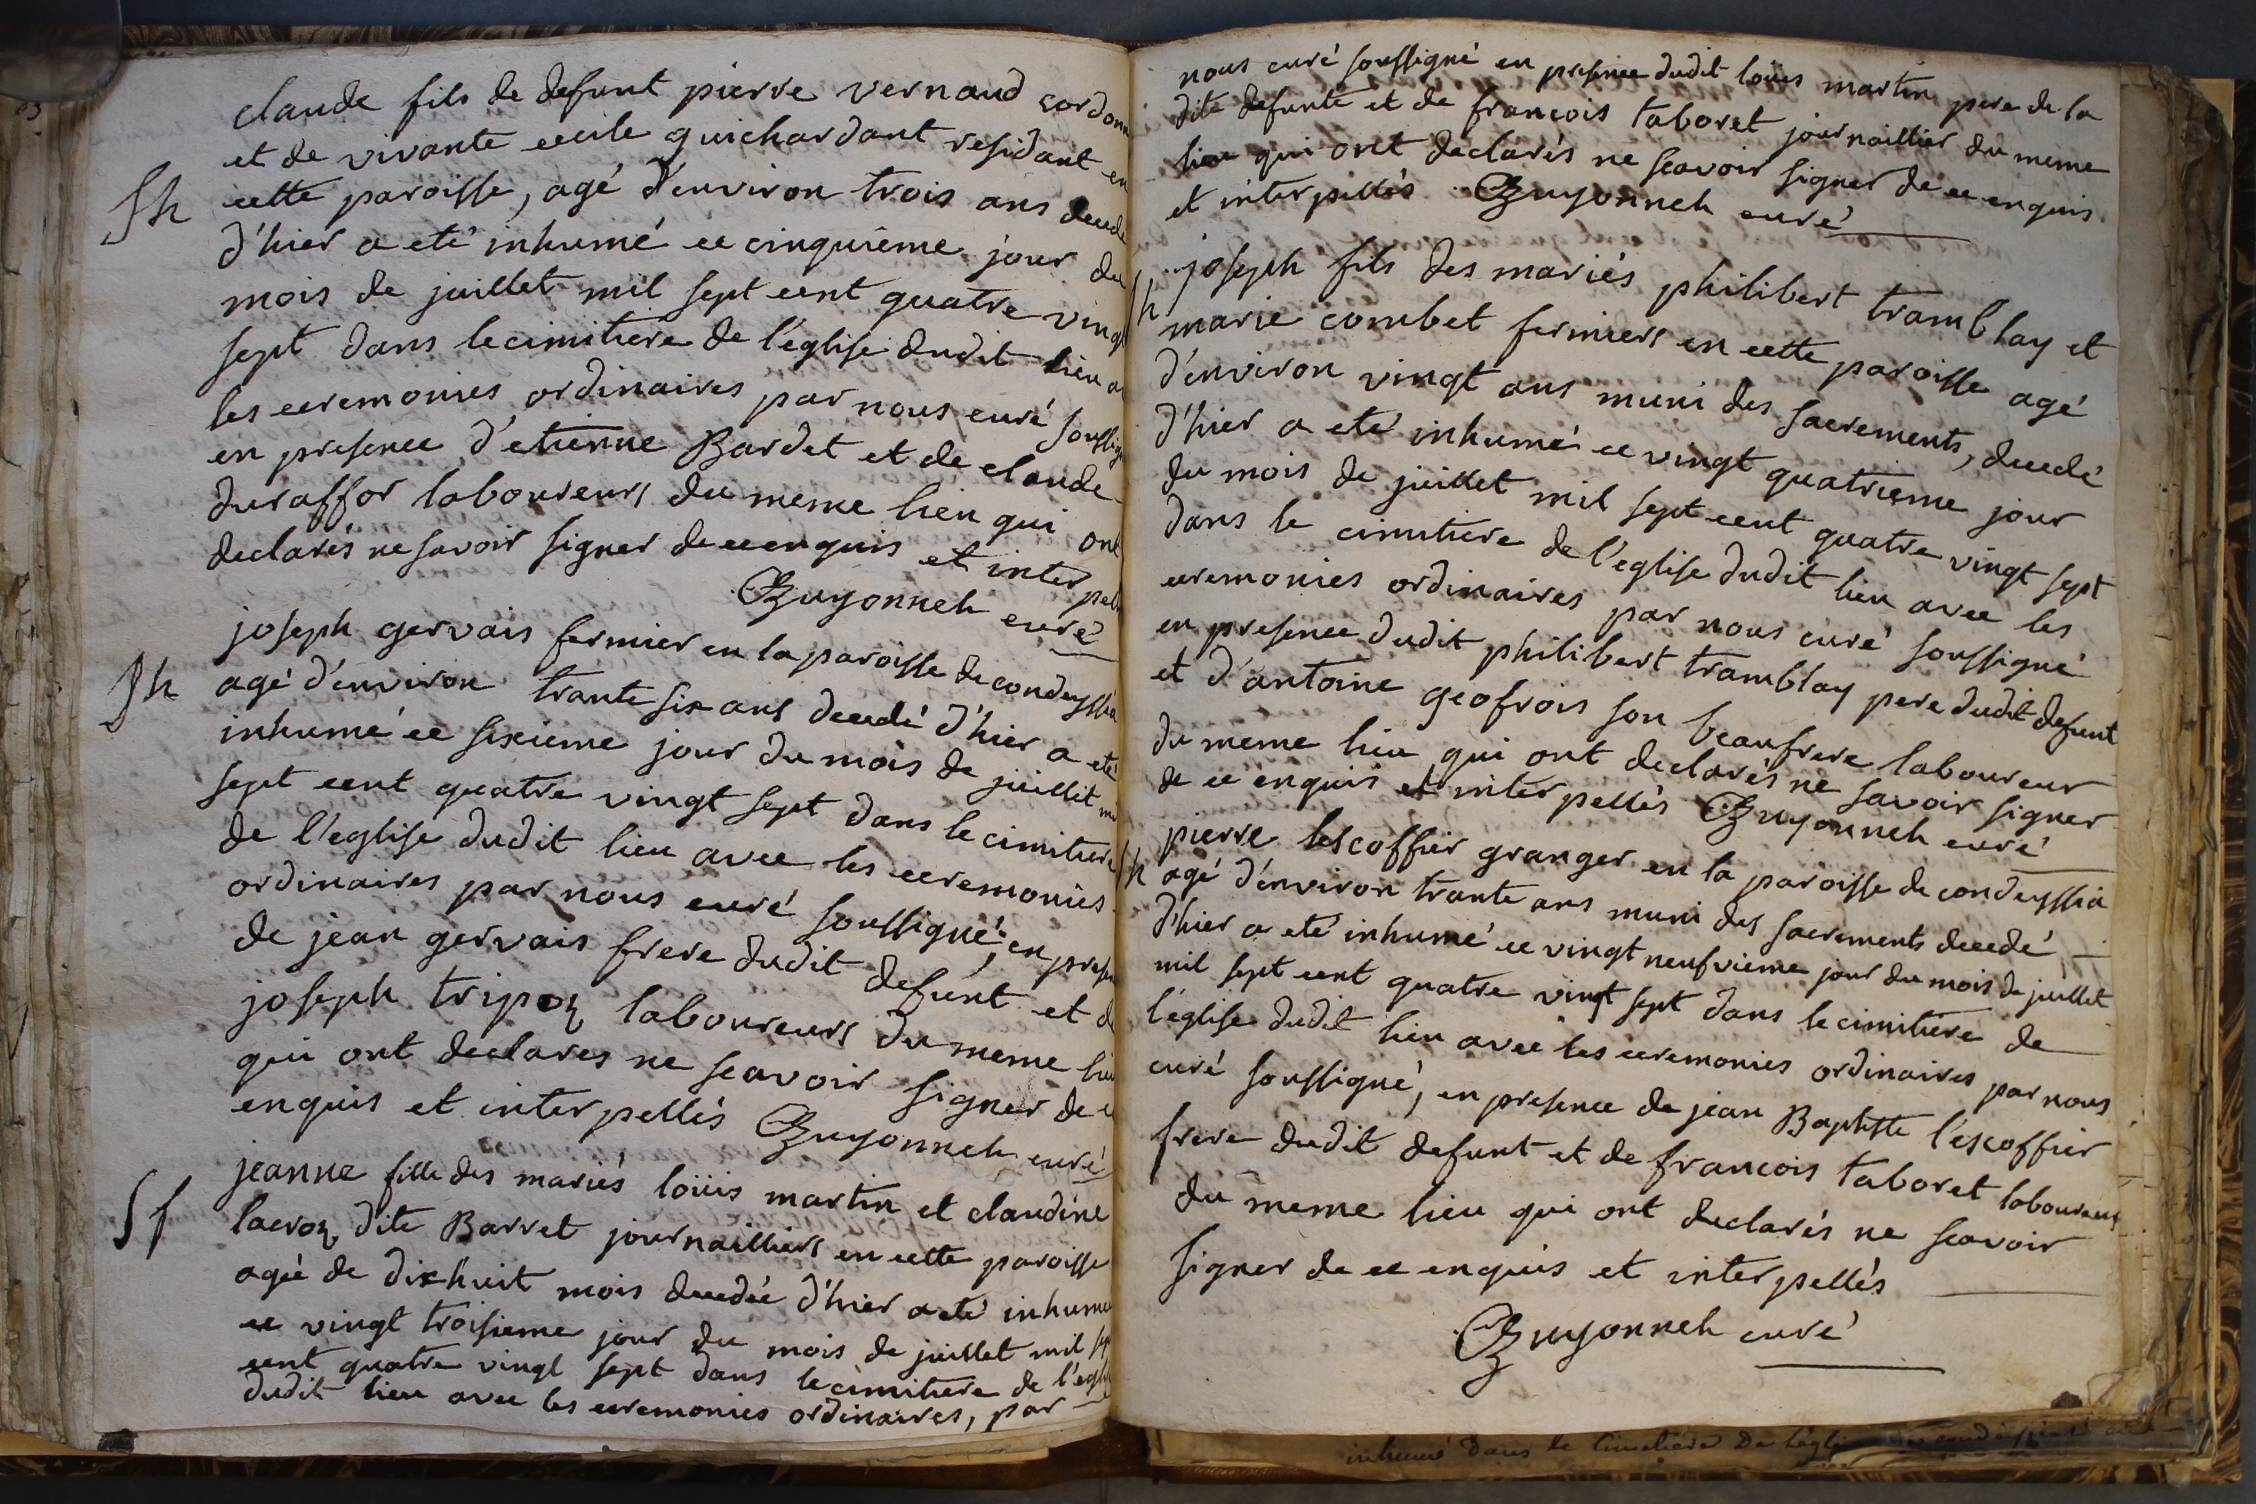 claude fils de defunt pierre vernaud cordonn
et de vivante cecile guichardant residant en
Sh
cette paroisse, agé d'environ trois ans decedé
d'hier a eté inhumé ce cinquième jour du
mois de juillet mil sept cent quatre vingt
sept dans le cimitiere de l'église dudit lieu a
les ceremonies ordinaires par nous curé soussign
en presence d'etienne Bardet et de claude
duraffor laboureurs du meme lieu qui ont
declarés ne savoir signer de ce enquis et interpell
Guyonneh curé
joseph gervais fermier en la paroisse de condeyssia
Sh
agé d'environ trante six ans decedé d'hier a eté
inhumé ce sixieme jour du mois de juillit mi
sept cent quatre vingt sept dans le cimitiere
de l'eglise dudit lieu avec les ceremonies
ordinaires par nous curé soussigné, en presen
de jean gervais frere dudit defunt et d
joseph tripoz laboureurs du meme lieu
qui ont declares ne scavoir signer de c
enquis et interpellés Guyonneh curé
jeanne fille des mariés loüis martin et claudine
Sf
lacroz dite Barret journailliers en cette paroisse
agée de dixhuit mois decedée d'hier a eté inhumé
ce vingt troisieme jour du mois de juillet mil sep
cent quatre vingt sept dans le cimitiere de l'egli
dudit lieu avec les ceremonies ordinaires, par
nous curé soussigné en presence dudit loües martin pere de la
dite defunte et de francois taboret journaillier du meme
lieu qui ont declarés ne scavoir signer de ce enquis
et interpellés Guyonneh curé
joseph fils des mariés philibert tramblay et
h
marie combet fermiers en cette paroisse agé
d'environ vingt ans muni des sacrements, decedé
d'hier a eté inhumé ce vingt quatrieme jour
du mois de juillet mil sept cent quatre vingt sept
dans le cimitiere de l'eglise dudit lieu avec les
ceremonies ordinaires par nous curé soussigné
en presence dudit philibert tramblay pere dudit defunt
et d'antoine geofrois son beaufrere laboureur
du meme lieu qui ont declarés ne savoir signer
de ce enquis et interpellés Guyonneh curé
pierre lescoffier granger en la paroisse de condeyssia
h
agé d'environ trante ans muni des sacrements decedé
d'hier a eté inhumé ce vingt neufvieme jour du mois de juillet
mil sept cent quatre vingt sept dans le cimitiere de
l'église dudit lieu avec les ceremonies ordinaires par nous
curé soussigné, en presence de jean Baptiste l'escoffier
frere dudit defunt et de francois taboret laboureurs
du meme lieu qui ont declarés ne scavoir
signer de ce enquis et interpellés
Guyonneh curé
inhumé dans le Cimetiere De l'églis